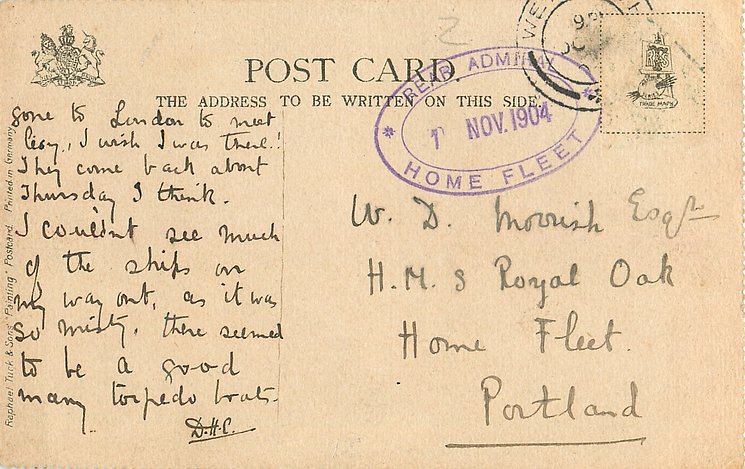 POST CARD
THE ADDRESS TO BE WRITTEN ON THIS SIDE.
REAR ADMIRAL
NOV. 1904
HOME FLEET
TRADE MARK
gone to London to meet
I wish I was there!
They come back about
Thursday I think.
I couldn't see much
of the ships on
my way out, as it was
so misty, there seemed
to be a good
many torpedo boats.
D.H.C.
W. D. Morrish Esqre
H.M.S Royal Oak
Home Fleet.
Portland
Raphael Tuck & Sons' "Painting" Postcard Printed in Germany